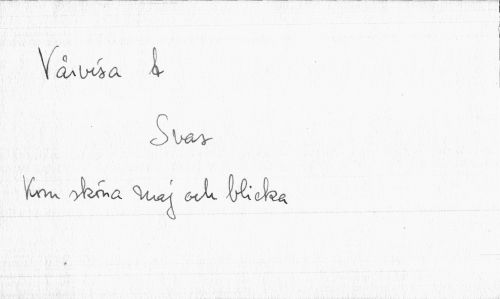 Vårvisa &
Svar
Kom sköna maj och blicka